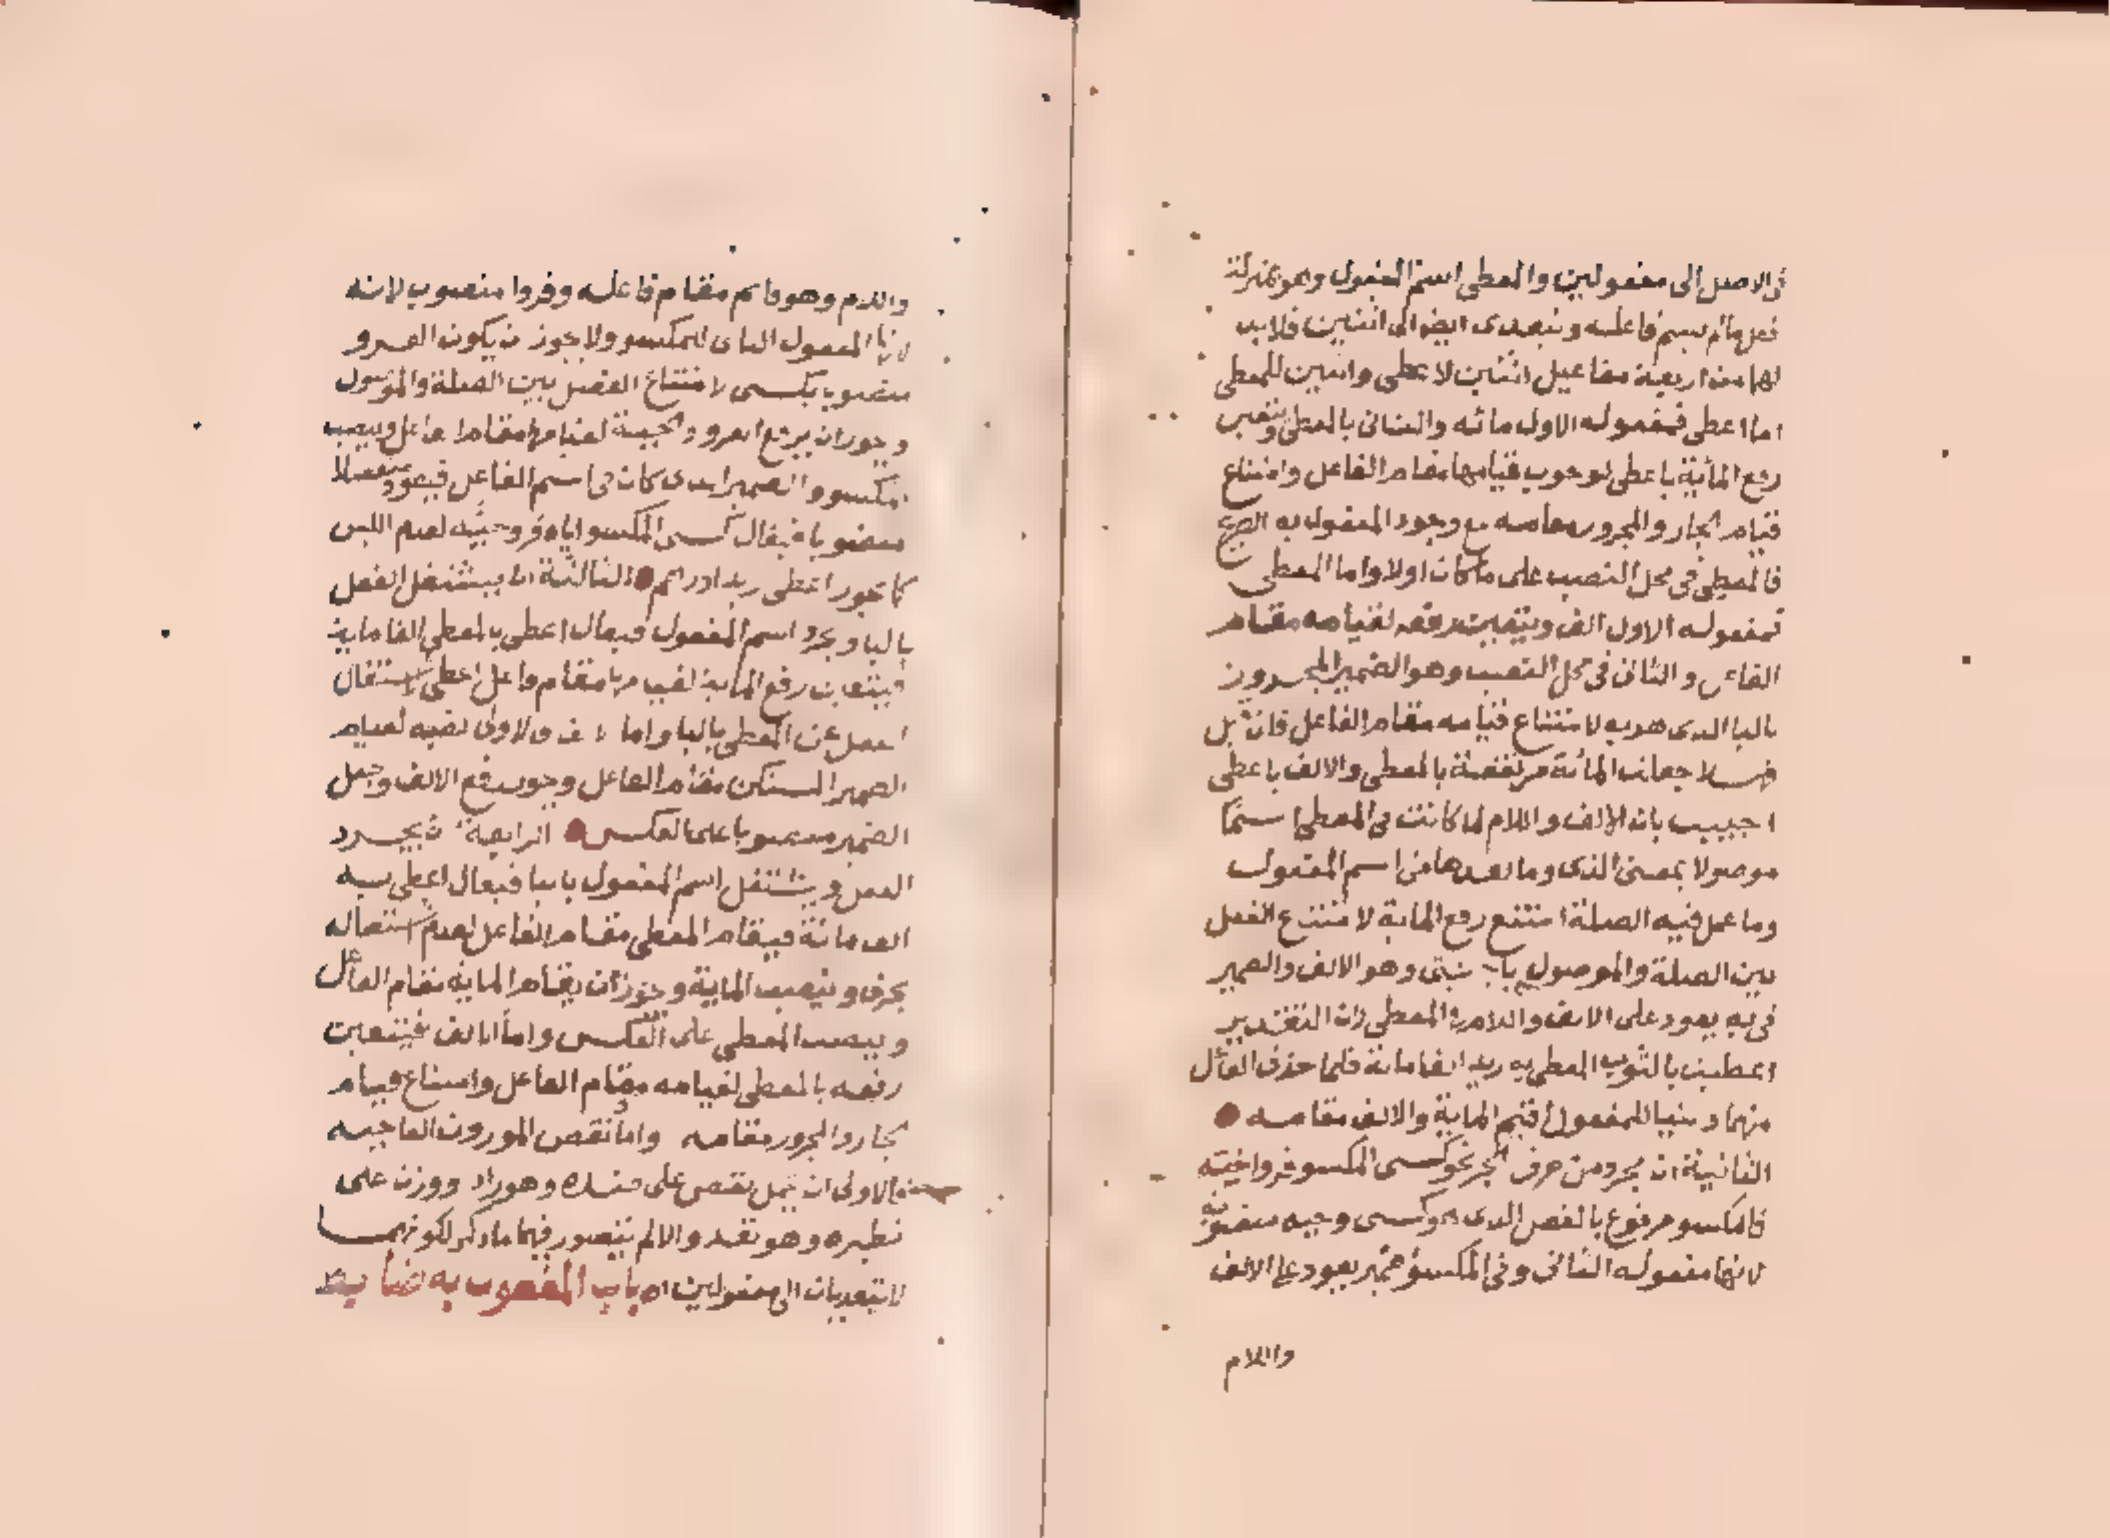 في الاصل الى مفعولين والمعطى اسم المفعول وهو بمنزلة
فعل ما لم يسم فاعله ويتعدى ايضا الى اثنين فلابد
لها من اربعة مفاعيل اثنين لاعطى واثنين للمعطى
اما اعطى فمفعوله الاول مائه والثانى بالمعطى ويتعين
رفع المائية باعطى لوجوب قيامها مقام الفاعل وامتناع
قيام الجار والمجرور مقامه مع وجود المفعول به الصريح
فالمعطى في محل النصب على ما كان اولا واما المعطى
فمفعوله الاول الف ويتعين رفعه لقيامه مقام
الفاعل والثانى في محل النصب وهو الضمير المجرور
بالبا الذى هو به لامتناع قيامه مقام الفاعل فان قيل
فهلا جعلت المائة مرتفعة بالمعطى والالف باعطى
اجيب بان الالف واللام لما كانت في المعطى اسما
موصولا بمعنى الذى وما بعدها من اسم المفعول
وما عمل فيه الصلة امتنع رفع الماية لامتناع الفصل
بين الصلة والموصول باجنبى وهو الالف والضمير
فى به يعود على الالف واللام فى المعطى لان التقدير
اعطيت بالثوب المعطى به زيد الفا مائة فلما حذف الفاعل
منهما وبنيا للمفعول اقيم الماية والالف مقامه
الثانية ان يجرد من حرف الجر نحو كسى المكسو فروا جبته
فالمكسو مرفوع بالفعل الذى هو كسى وجبه منصوبه
لانها مفعوله الثانى وفى المكسو ضمير يعود على الالف
واللام
واللام وهو قايم مقام فاعله وفروا منصوب لانه
لانها المفعول الثانى للمكسو ولا يجوز ان يكون الفرو
منصوبا بكسى لامتناع الفصل بين الصلة والموصول
ويجوز ان يرفع الفرو والجبة لقيامها مقام الفاعل وينصب
المكسو والضمير الذى كان في اسم الفاعل فيعود منفصلا
منصوبا فيقال كسى المكسو اياه فرو جبته لعدم اللبس
كما يجوز اعطى زيدا درهم الثالثة ان يشتغل الفعل
بالبا ويجرد اسم المفعول فيقال اعطى بالمعطى الفا ماية
فيتعين رفع الماية لقيامها مقام فاعل اعطى لاشتغال
الفعل عن المعطى بالبا واما الالف فالاولى نصبه لقيام
الضمير المستكن مقام الفاعل ويجوز رفع الالف وجعل
الضمير منصوبا على العكس الرابعة ان يجرد
الفعل ويشتغل اسم المفعول بالبا فيقال اعطى به
الف مائة فيقام المعطى مقام الفاعل لعدم اشتغاله
بحرف وينصب الماية ويجوز ان يقام الماية مقام الفاعل
وينصب المعطى على العكس واما الالف فيتعين
رفعه بالمعطى لقيامه مقام الفاعل وامتناع قيام
الجار والمجرور مقامه واما نقص الموزون الفا جبه
فالاولى ان يحمل نقص على ضده وهو زاد ووزن على
نظيره وهو نقد والا لم يتصور فيهما ما ذكر لكونهما
لا يتعديان الى مفعولين اه باب المفعول به ضابط